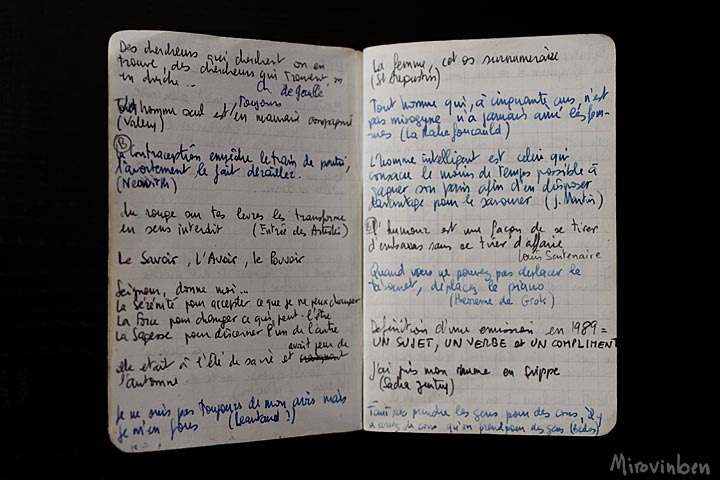 Des chercheurs qui cherchent on en
trouve, des chercheurs qui trouvent, on
en cherche...
Ch. de Gaulle
Tout homme seul est toujours en mauvaise compagnie
(Valéry)
(B)
La contraception empêche le train de partir,
l'avortement le fait dérailler.
Du rouge sur tes lèvres les transforme
en sens interdit (Entrée des Artistes)
Le Savoir, L'Avoir, le Pouvoir
Seigneur, donne moi...
La Sérénité pour accepter ce que je ne peux changer
La Force pour changer ce qui peut l'être
La Sagesse pour discerner l'un de l'autre
elle était à l'Été de sa vie et avait peur de
l'automne
Je ne suis pas toujours de mon avis mais
je m'en fous (Léautaud?)
La femme, cet os surnuméraire
(St Augustin)
Tout homme qui, à cinquante ans, n'est
pas misogyne n'a jamais aimé les fem-
mes (La Rochefoucauld)
L'homme intelligent est celui qui
consacre le moins de temps possible à
gagner son pain afin d'en disposer
davantage pour le savourer (J. Martin)
L'humour est une façon de se tirer
d'embarras sans se tirer d'affaire
Louis Scutenaire
Quand vous ne pouvez pas déplacer le
tabouret, déplacez le piano
(théorème de Grok)
Définition d'une émission en 1989 =
UN SUJET, UN VERBE et UN COMPLIMENT
J'ai pris mon rhume en grippe
(Sacha Guitry)
Faut pas prendre les gens pour des cons, il y
a assez de cons qu'on prend pour des gens (Bedos)
Mirovinben